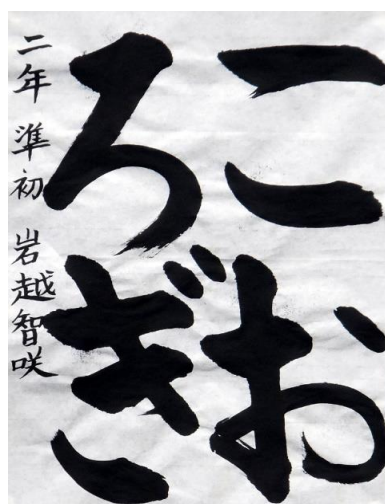 こお
ろぎ
二年 準初 岩越智咲